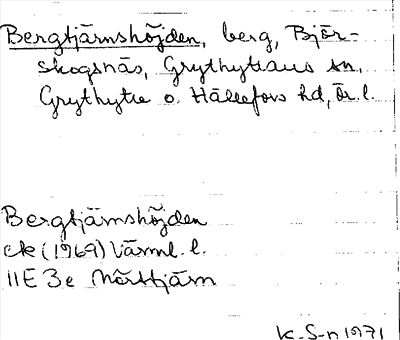 Bergtjärnshöjden, berg, Björ-
skogsnäs, Grythyttans sn,
Grythytte o. Hällefors hd, ör. l.
Bergtjärnshöjden
ek (1969) Värml. l.
11E 3e Norttjärn
K. S-n 1971